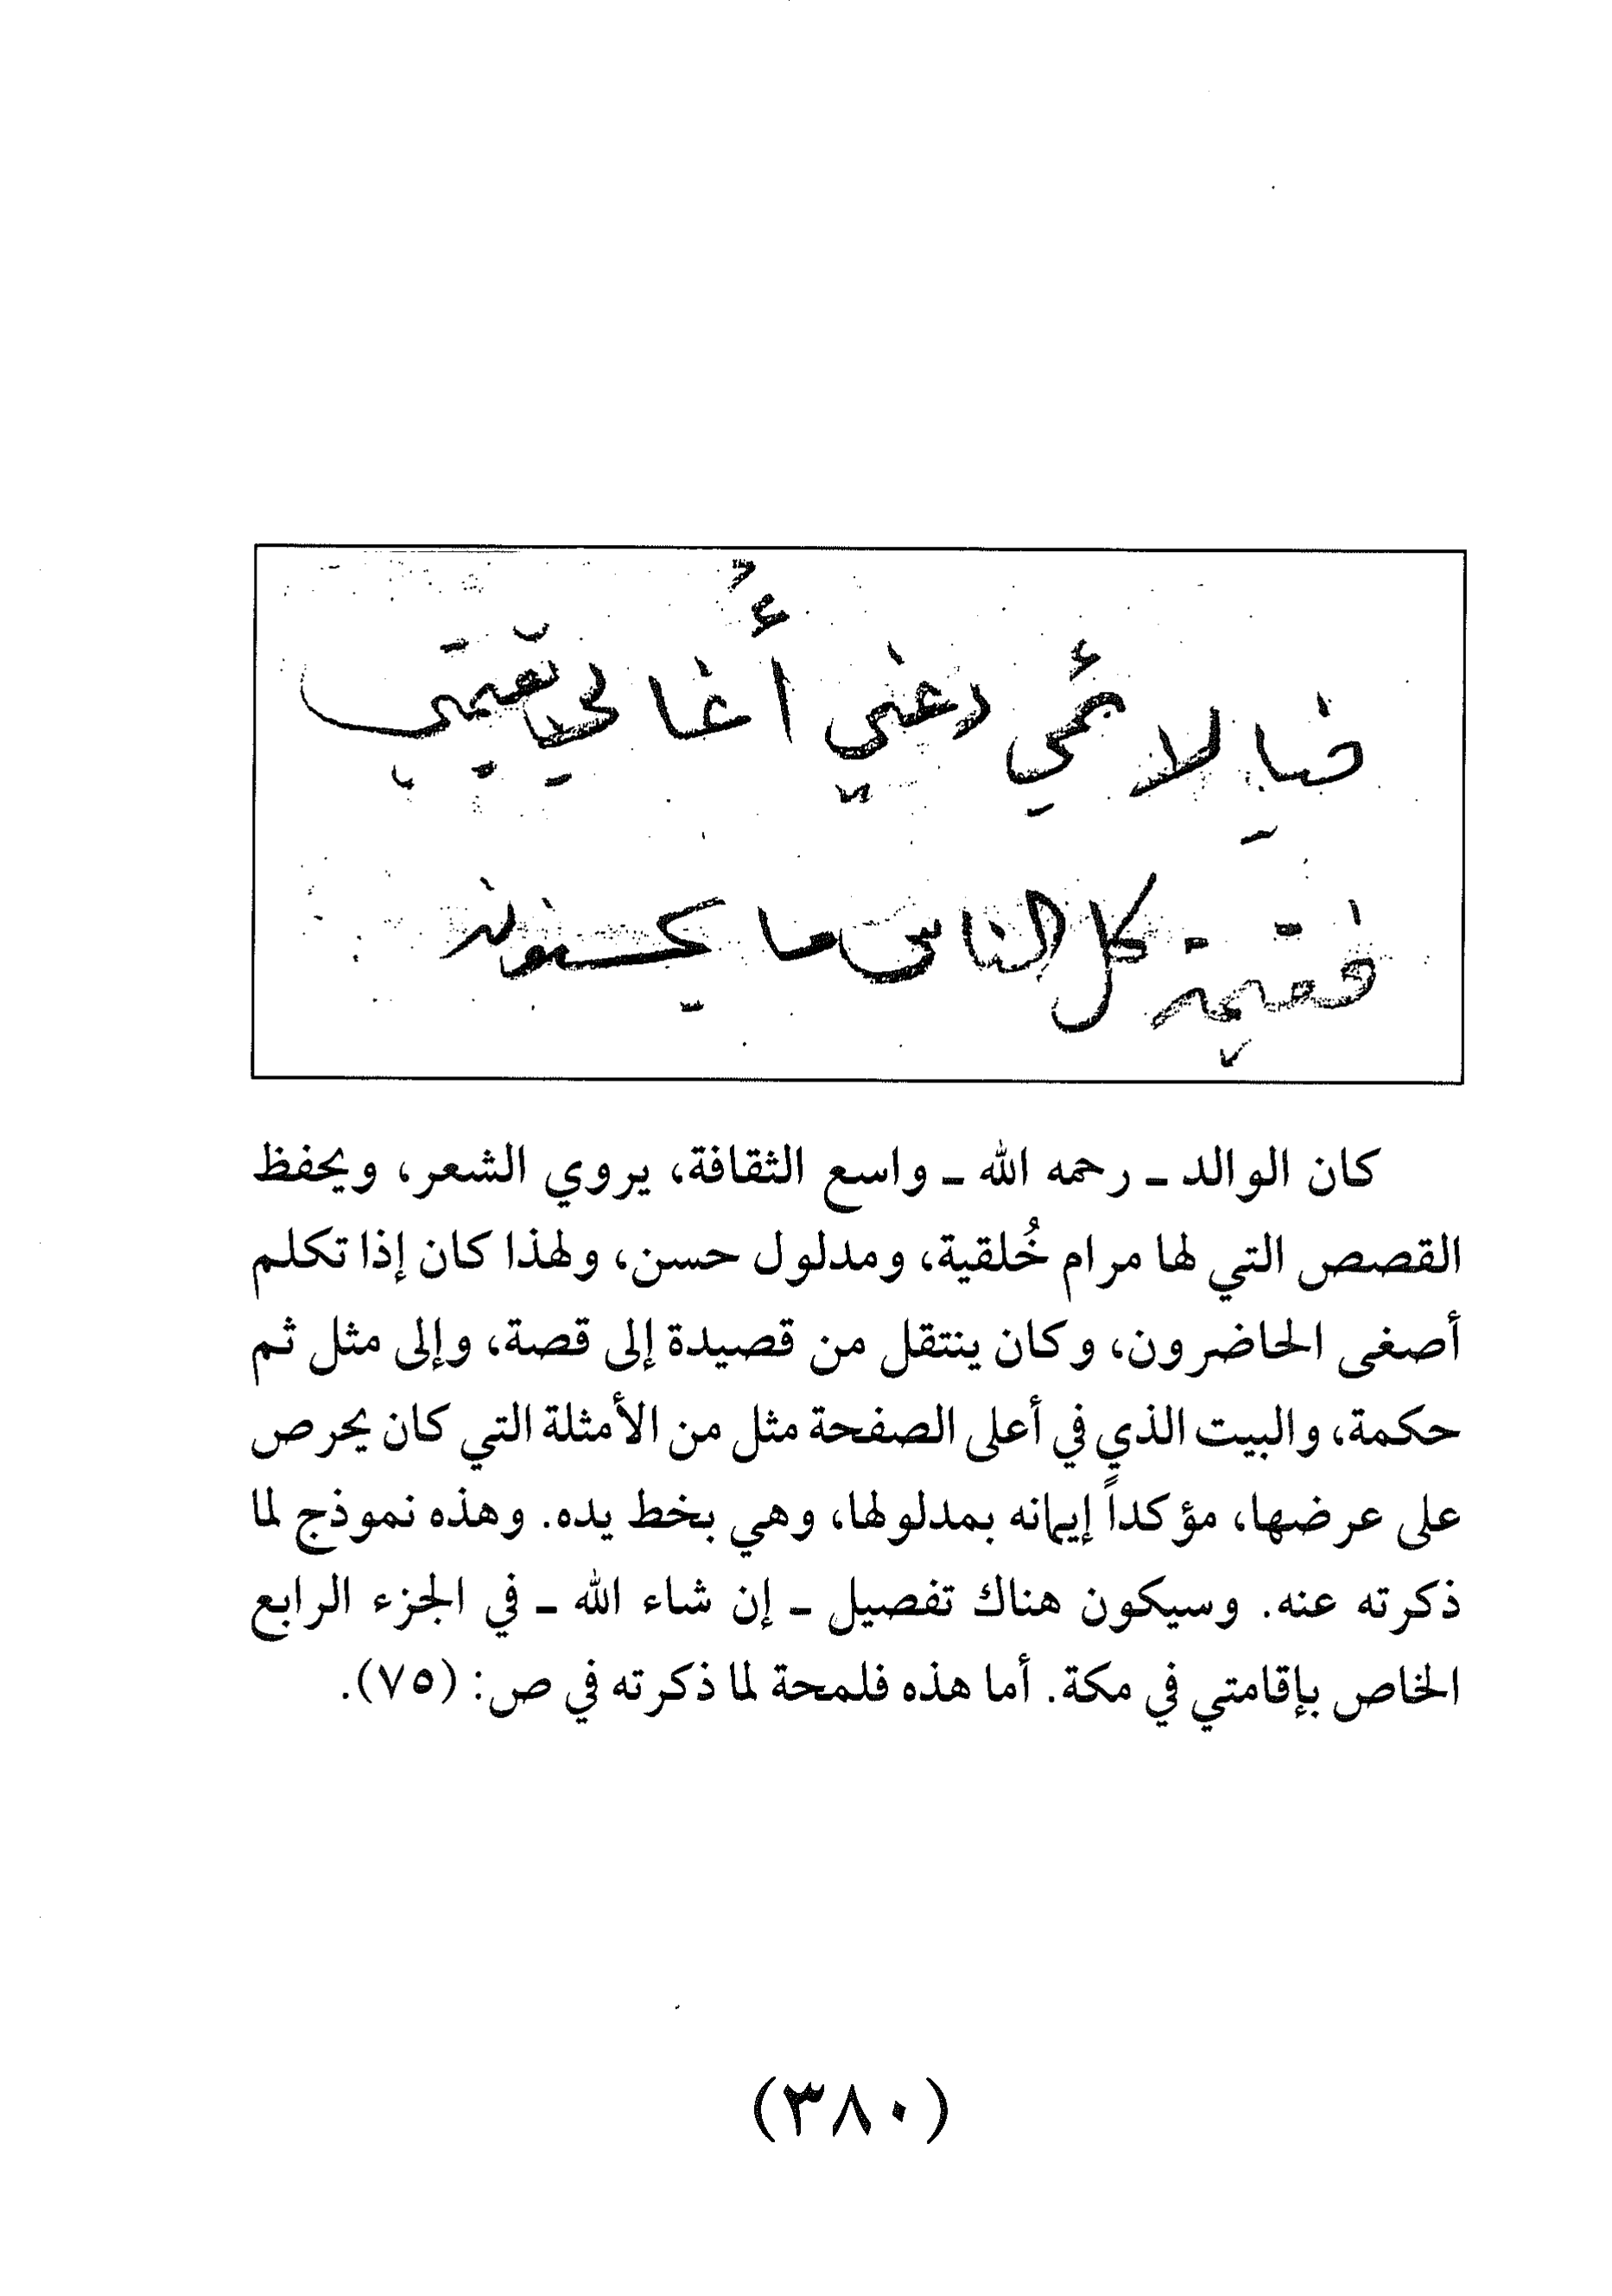 فيا لائمي دعني أُغالي بقيمتي
فقيمة كل الناس ما يحسنونه
كان الوالد ـ رحمه الله ـ واسع الثقافة، يروي الشعر، ويحفظ
القصص التي لها مرام خُلقية، ومدلول حسن، ولهذا كان إذا تكلم
أصغى الحاضرون، وكان ينتقل من قصيدة إلى قصة، وإلى مثل ثم
حكمة، والبيت الذي في أعلى الصفحة مثل من الأمثلة التي كان يحرص
على عرضها، مؤكداً إيمانه بمدلولها، وهي بخط يده. وهذه نموذج لما
ذكرته عنه. وسيكون هناك تفصيل ـ إن شاء الله ـ في الجزء الرابع
الخاص بإقامتي في مكة. أما هذه فلمحة لما ذكرته في ص: (٧٥).
(٣٨٠)